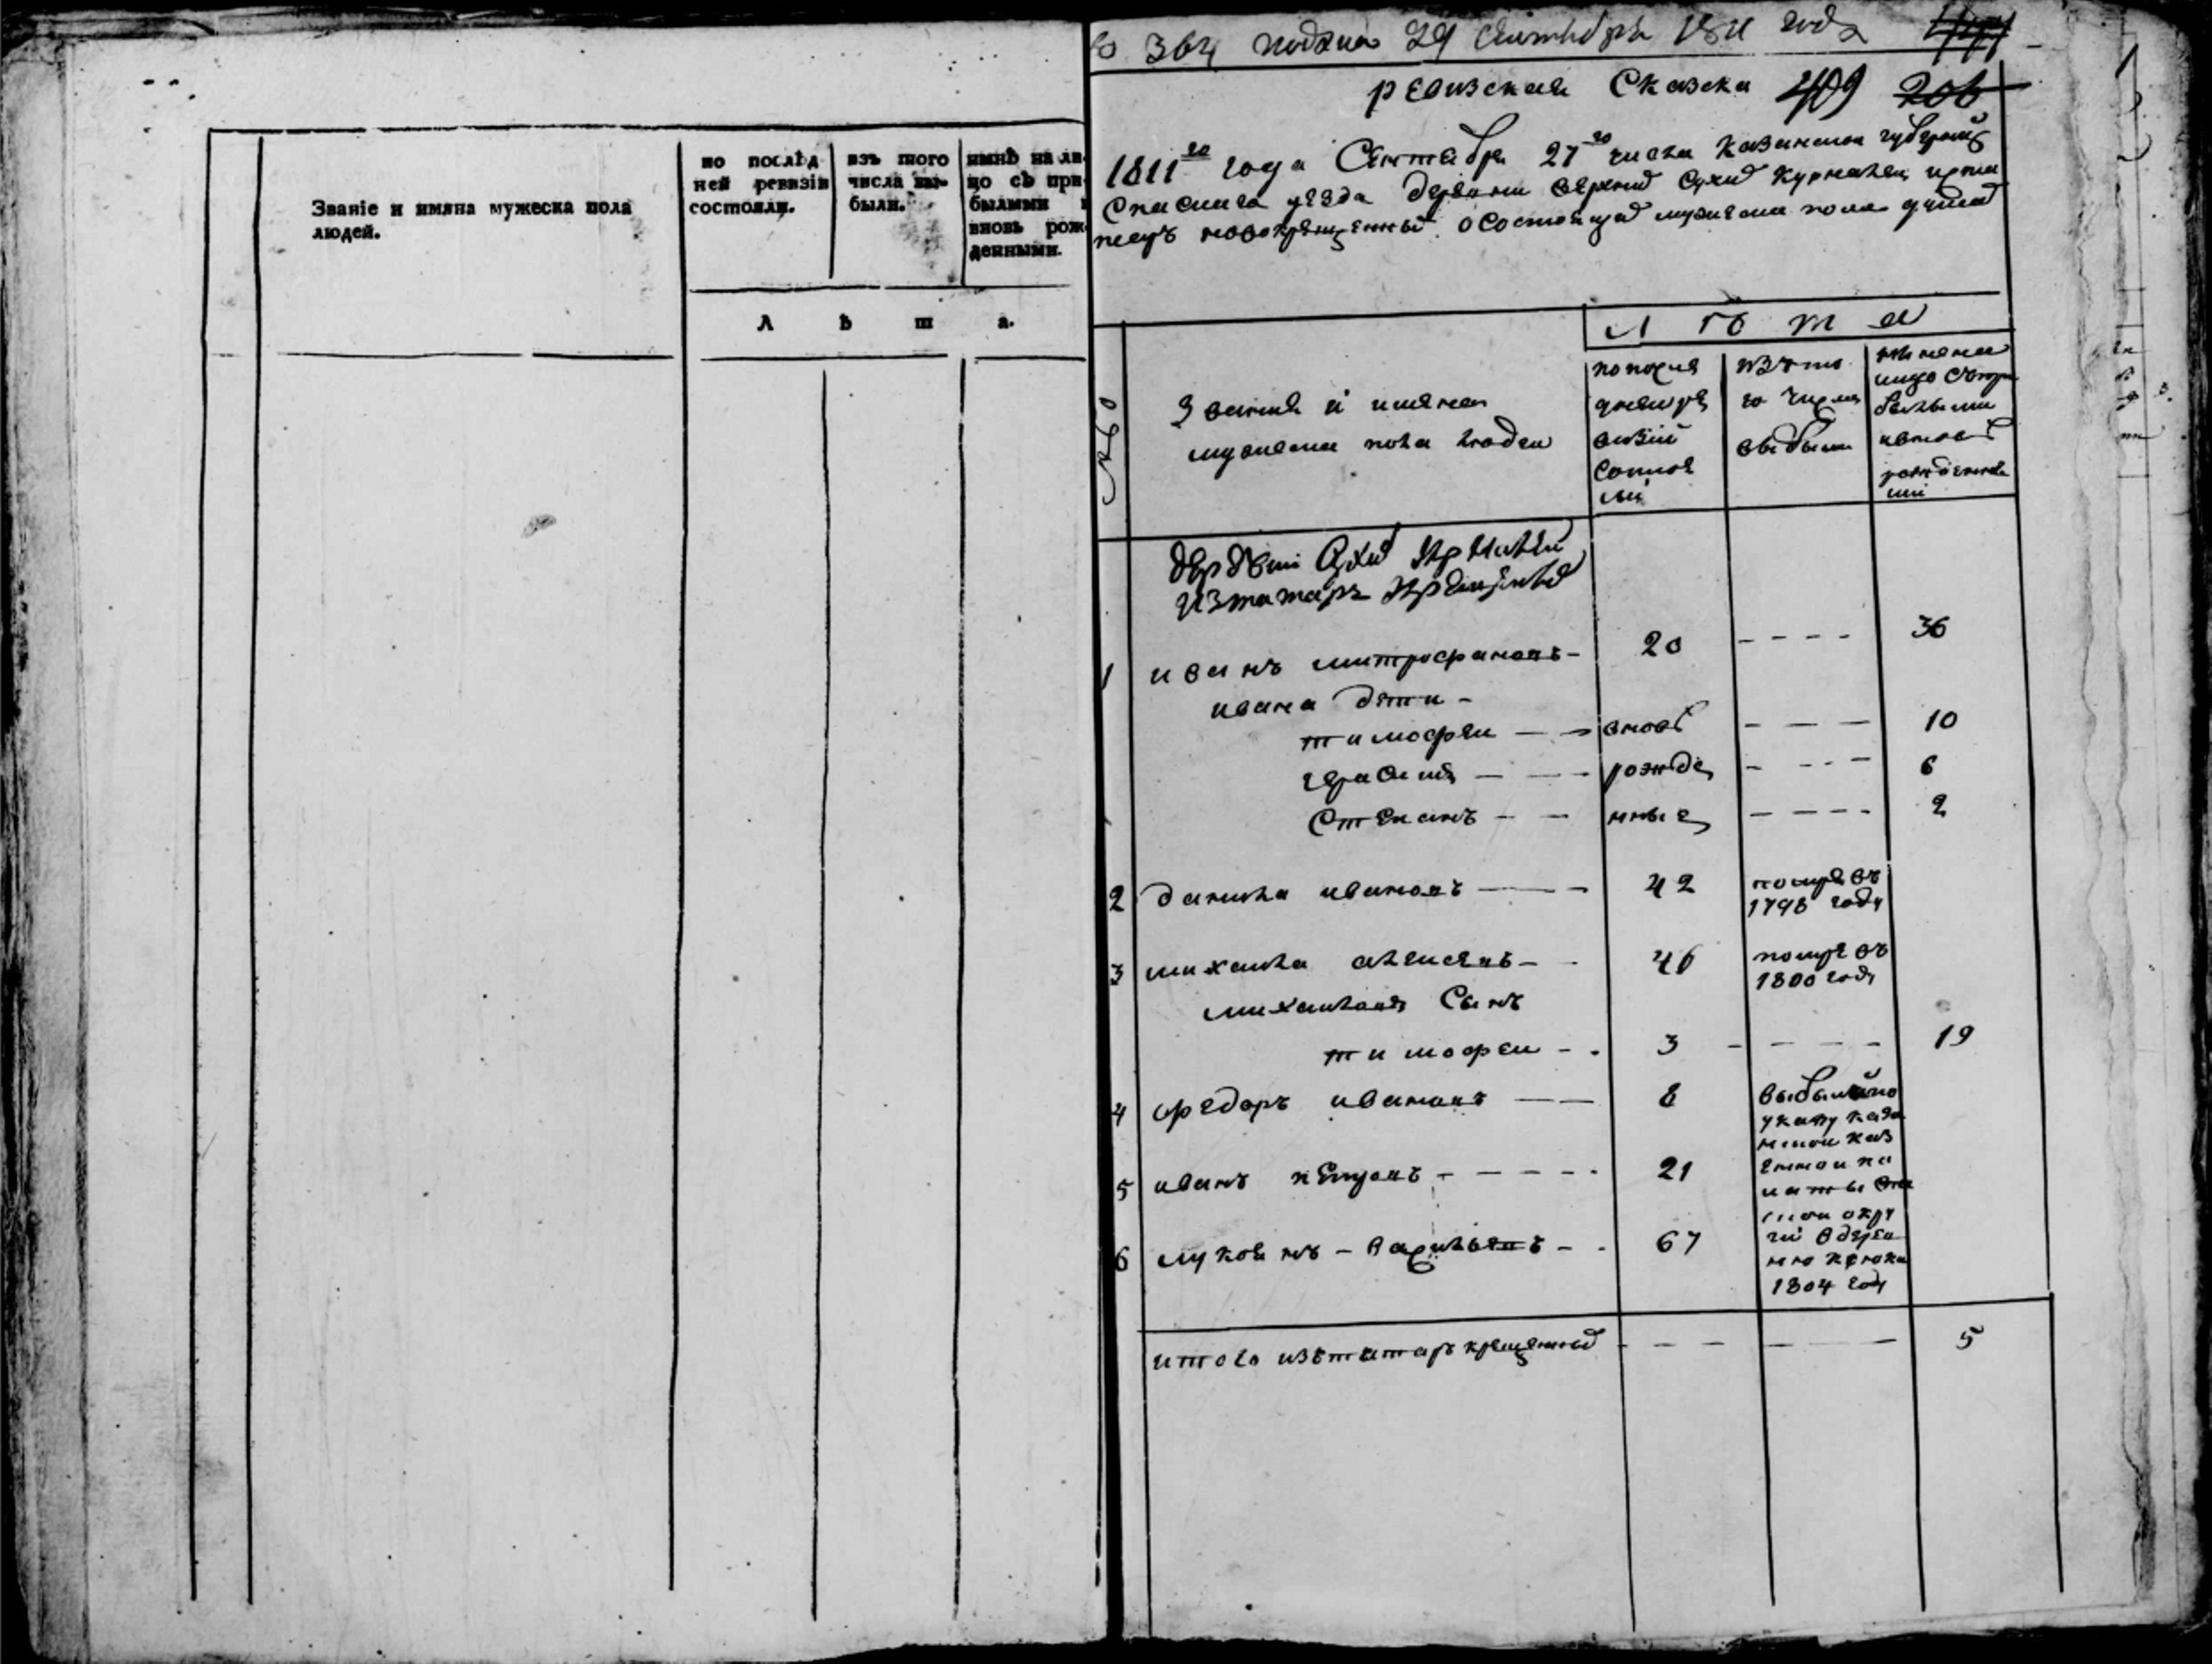 Званіе и имяна мужеска пола
людей.
по послѣд
ней ревизіи
состояли.
изъ того
числа вы-
были.
нынѣ на ли-
цо съ при-
былыми и
вновь рож
денными.
Л ѣ т а.
364 подана 29 Сентября 1811 года
ревизская Сказка 409 206
1811 го года Сентября 27 го числа Казанской губернии
Спаскаго уезда деревни верхнид Сухид Курналеи
новокрещенныд о состоящид мужеска пола душад
Л ѣ т а
№
Звание и имена
мужеска пола людеи
по после
днеи ре
визии
состоя
ли
изъ то
го числа
выбыли
ныне на
лицо съ при
былыми
и вновь
рожденны
ми
деревни Сухид Курналеи
из татаръ крещеныд
1 иванъ митрофановъ - 20 - - - - 36
ивана дети -
тимофеи — — вновь - — — 10
герасимъ — — рожде - - - — 6
Степанъ - — нные - - - - 2
2 данила ивановъ — — 42 помре въ
1798 году
3 михаила алексеевъ - - 46 помре въ
1800 году
михаилы Сынъ
тимофеи - . 3 - - - - 19
4 федоръ ивановъ — — 8 выбыли по
указу каза
нскои каз
5 иванъ петровъ - - - - - 21 еннои па
латы
скои окру
6 лукоянъ - васильевъ - - 67 ги в дерев
ню
1804 году
итого изъ татаръ крещенныд - - - — — 5